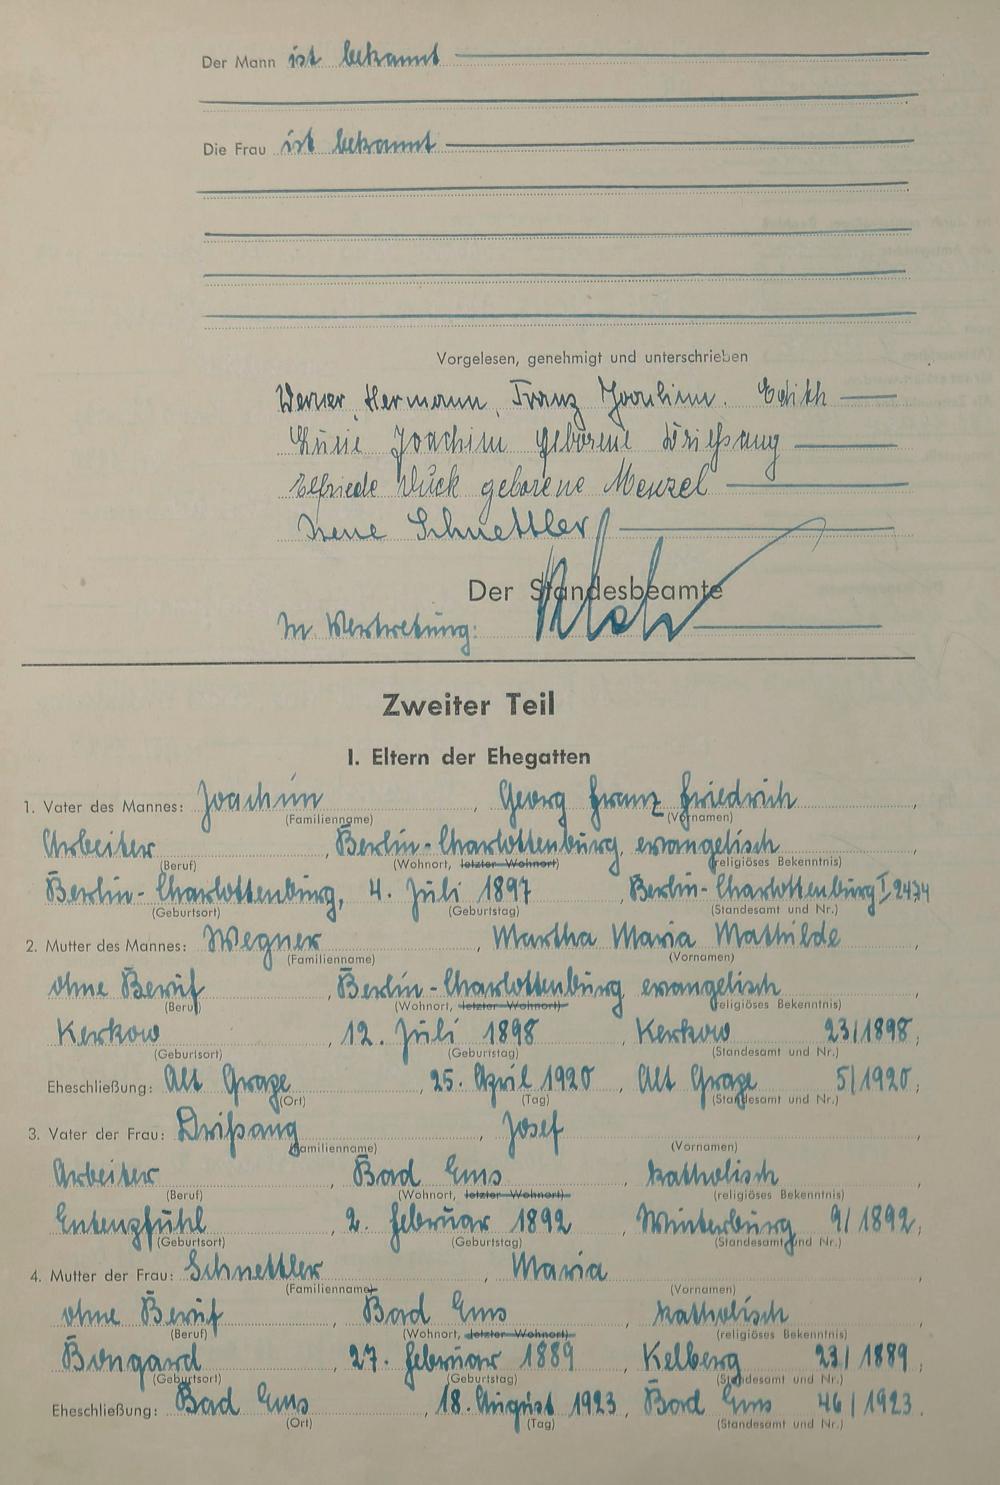 Der Mann ist bekannt
Die Frau ist bekannt
Vorgelesen, genehmigt und unterschrieben
Werner, Hermann, Franz Joachim. Edith
Luzie Joachim geborene Drißang
Elfriede Wick geborene Menzel
Irene Schnettler
Der Standesbeamte
In Vertretung:
Zweiter Teil
I. Eltern der Ehegatten
1. Vater des Mannes: Joachim, Georg Franz Friedrich,
(Familienname) (Vornamen)
Arbeiter, Berlin-Charlottenburg, evangelisch
(Beruf) (Wohnort, letzter Wohnort) (religiöses Bekenntnis)
Berlin-Charlottenburg, 4. Juli 1897, Berlin-Charlottenburg I, 2434
(Geburtsort) (Geburtstag) (Standesamt und Nr.)
2. Mutter des Mannes: Wegner, Martha Maria Mathilde,
(Familienname) (Vornamen)
ohne Beruf, Berlin-Charlottenburg evangelisch
(Beruf) (Wohnort, letzter Wohnort) (religiöses Bekenntnis)
Kerkow, 12. Juli 1898, Kerkow 23/1898,
(Geburtsort) (Geburtstag) (Standesamt und Nr.)
Eheschließung: Alt Grape, 25. April 1920, Alt Grape 5/1920,
(Ort) (Tag) (Standesamt und Nr.)
3. Vater der Frau: Drißang, Josef,
(Familienname) (Vornamen)
Arbeiter, Bad Ems, katholisch
(Beruf) (Wohnort, letzter Wohnort) (religiöses Bekenntnis)
Entenpfuhl, 2. Februar 1892, Winterburg 9/1892,
(Geburtsort) (Geburtstag) (Standesamt und Nr.)
4. Mutter der Frau: Schnettler, Maria,
(Familienname) (Vornamen)
ohne Beruf, Bad Ems, katholisch
(Beruf) (Wohnort, letzter Wohnort) (religiöses Bekenntnis)
Bongard, 27. Februar 1889, Kelberg 23/1889,
(Geburtsort) (Geburtstag) (Standesamt und Nr.)
Eheschließung: Bad Ems, 18. August 1923, Bad Ems 46/1923.
(Ort) (Tag) (Standesamt und Nr.)